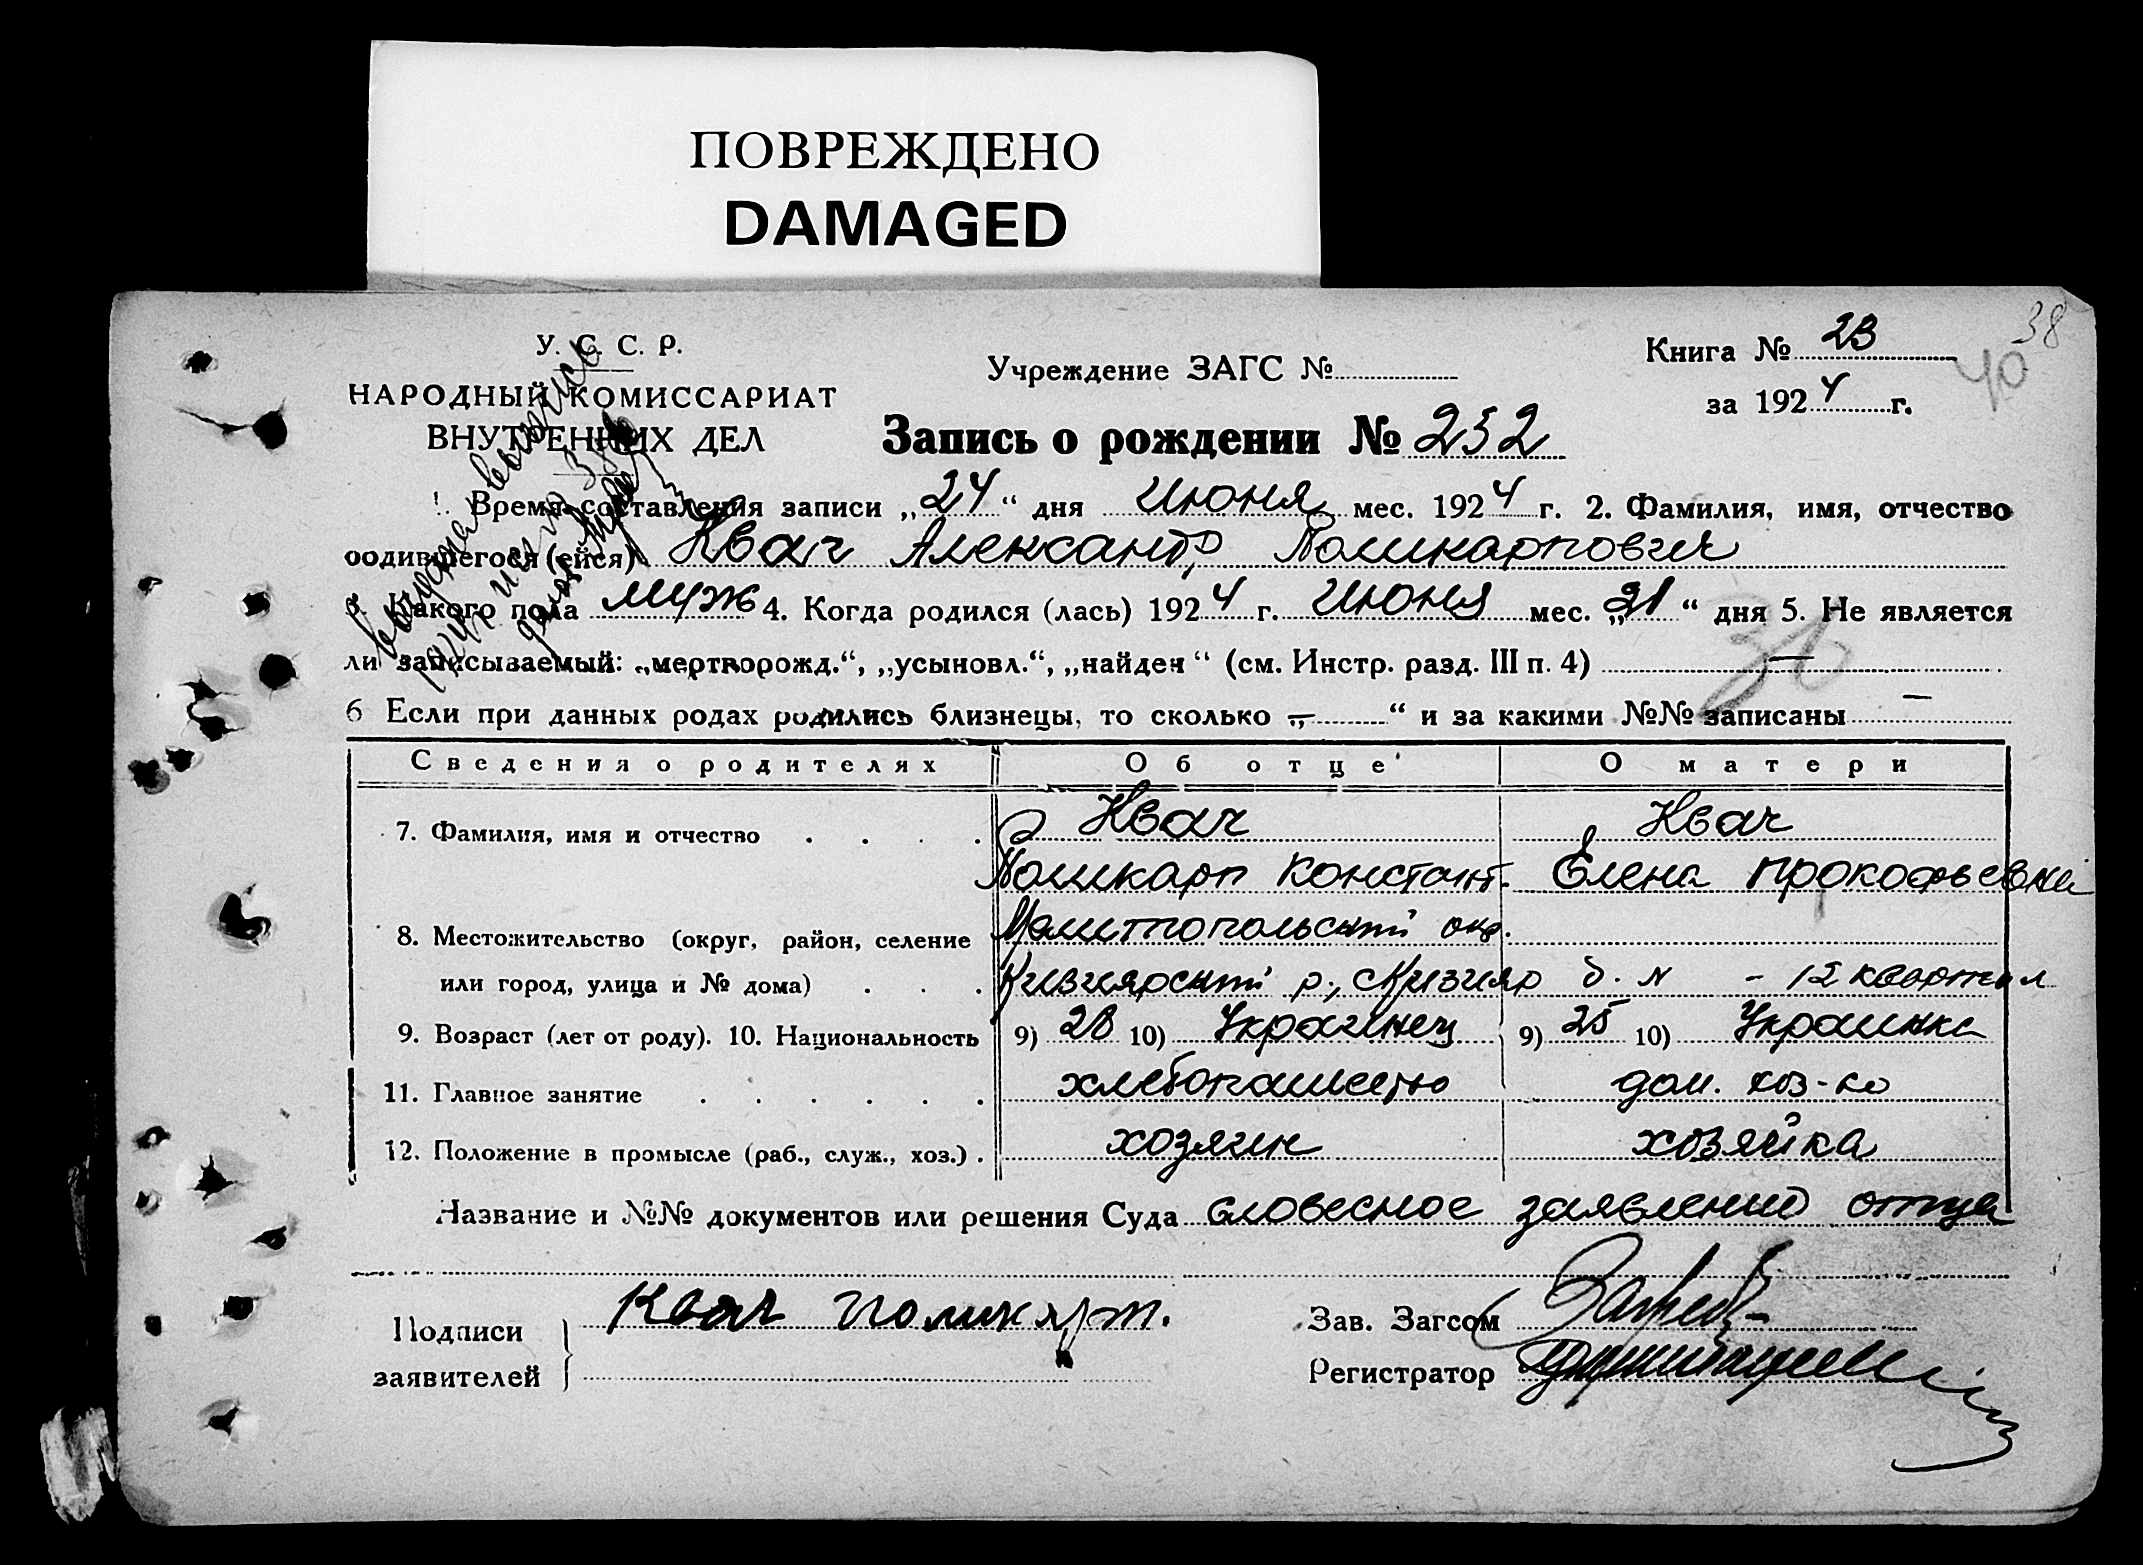 ПОВРЕЖДЕНО
DAMAGED
38
40
У. С. С. Р.
НАРОДНЫЙ КОМИССАРИАТ
ВНУТРЕННИХ ДЕЛ
Учреждение ЗАГС №
Книга № 23
за 1924 г.
Запись о рождении № 252
1. Время составления записи „24“ дня Июня мес. 1924 г. 2. Фамилия, имя, отчество
родившегося (ейся) Квач Александр Поликарпович
3. Какого пола муж 4. Когда родился (лась) 1924 г. Июня мес. „21“ дня 5. Не является
ли записываемый: „мертворожд.“, „усыновл.“, „найден“ (см. Инстр. разд. III п. 4) —
6 Если при данных родах родились близнецы, то сколько „—“ и за какими №№ записаны —
Выдана выпись
Сведения о родителях Об отце О матери
7. Фамилия, имя и отчество . . . . Квач Квач
Поликарп Констант. Елена Прокофьевна
8. Местожительство (округ, район, селение Мелитопольский окр.
или город, улица и № дома) . . . Кизиярский р., с Кизияр д. № - 12 квартал
9. Возраст (лет от роду). 10. Национальность 9) 28 10) Украинец 9) 25 10) Украинка
11. Главное занятие . . . . . . хлебопашество дом. хоз-во
12. Положение в промысле (раб., служ., хоз.) . хозяин хозяйка
Название и №№ документов или решения Суда словесное заявление отца
Подписи
заявителей
Квач Поликарп.
Зав. Загсом
Регистратор